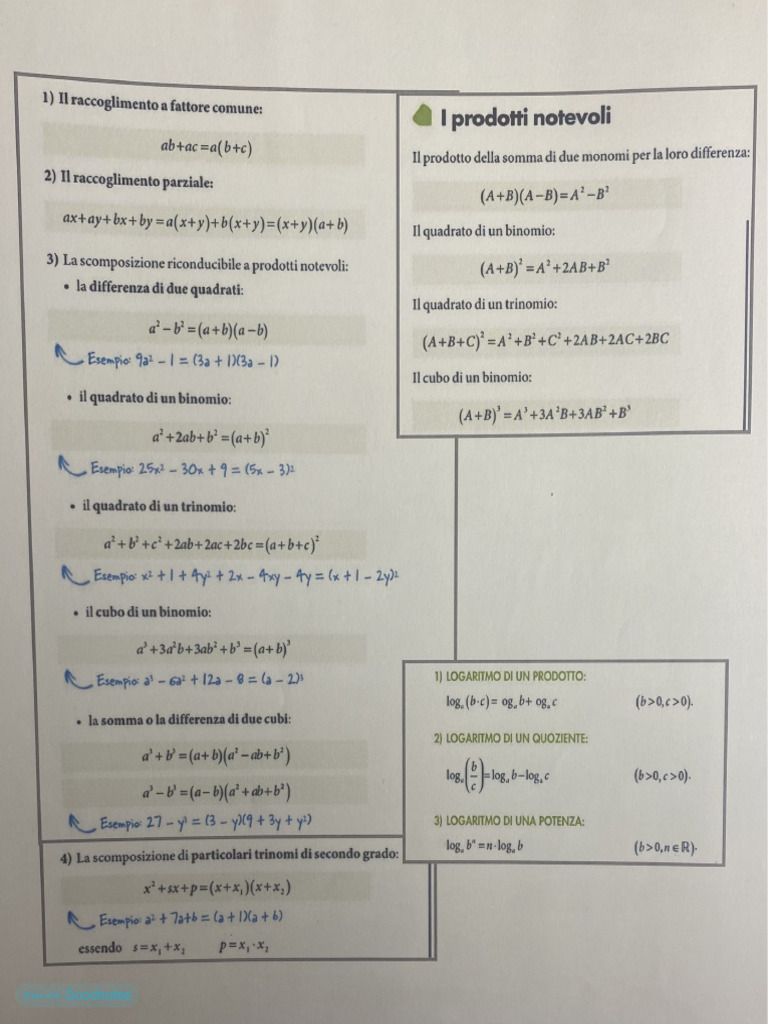 1) Il raccoglimento a fattore comune:
ab+ac=a(b+c)
2) Il raccoglimento parziale:
ax+ay+bx+by=a(x+y)+b(x+y)=(x+y)(a+b)
3) La scomposizione riconducibile a prodotti notevoli:
• la differenza di due quadrati:
a²−b²=(a+b)(a−b)
Esempio: 9a² − 1 = (3a + 1)(3a − 1)
• il quadrato di un binomio:
a²+2ab+b²=(a+b)²
Esempio: 25x² − 30x + 9 = (5x − 3)²
• il quadrato di un trinomio:
a²+b²+c²+2ab+2ac+2bc=(a+b+c)²
Esempio: x² + 1 + 4y² + 2x − 4xy − 4y = (x + 1 − 2y)²
• il cubo di un binomio:
a³+3a²b+3ab²+b³=(a+b)³
Esempio: a³ − 6a² + 12a − 8 = (a − 2)³
• la somma o la differenza di due cubi:
a³+b³=(a+b)(a²−ab+b²)
a³−b³=(a−b)(a²+ab+b²)
Esempio: 27 − y³ = (3 − y)(9 + 3y + y²)
4) La scomposizione di particolari trinomi di secondo grado:
x²+sx+p=(x+x₁)(x+x₂)
Esempio: a² + 7a+6 = (a + 1)(a + 6)
essendo s=x₁+x₂ p=x₁·x₂
I prodotti notevoli
Il prodotto della somma di due monomi per la loro differenza:
(A+B)(A−B)=A²−B²
Il quadrato di un binomio:
(A+B)²=A²+2AB+B²
Il quadrato di un trinomio:
(A+B+C)²=A²+B²+C²+2AB+2AC+2BC
Il cubo di un binomio:
(A+B)³=A³+3A²B+3AB²+B³
1) LOGARITMO DI UN PRODOTTO:
logₐ(b·c)= ogₐb+ ogₐc (b>0,c>0).
2) LOGARITMO DI UN QUOZIENTE:
logₐ(b/c)=logₐb−logₐc (b>0,c>0).
3) LOGARITMO DI UNA POTENZA:
logₐbⁿ=n·logₐb (b>0,n∈ℝ).